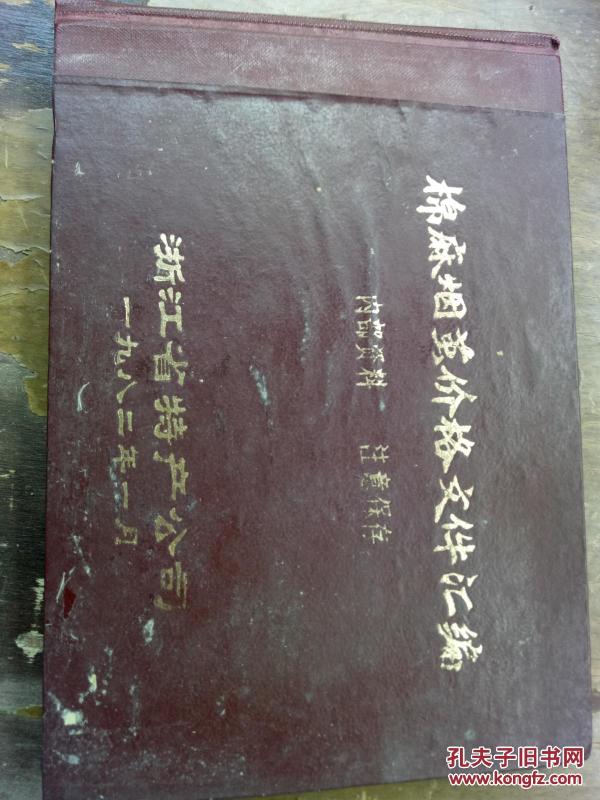 棉麻烟茧价格文件汇编
内部资料 注意保存
浙江省特产公司
一九八二年一月
孔夫子旧书网
www.kongfz.com